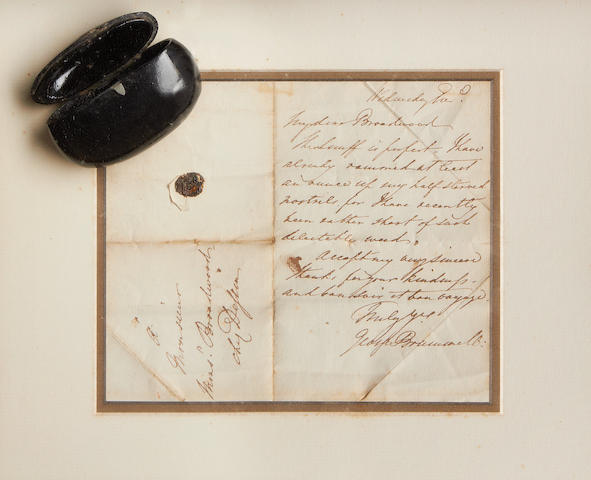 Wednesday Eve.
My dear Broadwood
The Snuff is perfect. I have
already rammed at least
an ounce up my half starved
nostrils for I have recently
been rather short of such
delectable weed.
Accept my very sincere
thanks for your kindness
and bon soir et bon voyage.
Truly yrs
George Brummell:
à
Monsieur
Monsr. Broadwood
chez Dessin